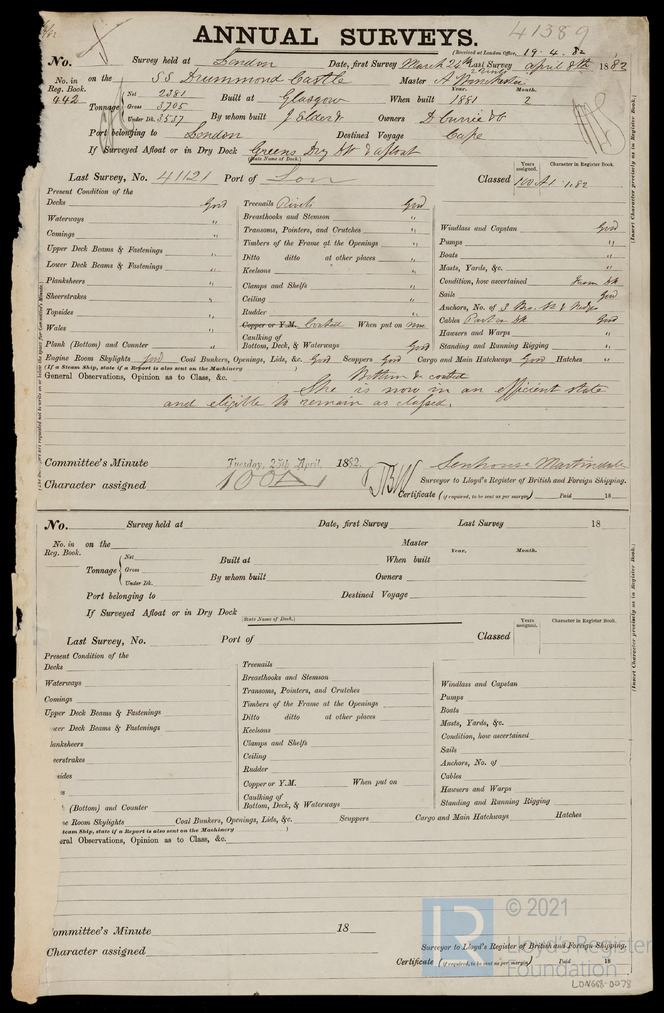 41389
ANNUAL SURVEYS.
(Received at London Office, 19.4.82
No. Survey held at London Date, first Survey March 24th Last Survey April 8th 1882
No. in Reg. Book. on the SS Drummond Castle Master A Winchester
442 Tonnage Net 2381 Built at Glasgow When built Year. 1881 Month. 2
Gross 3705
Under Dk. 3537 By whom built J Elder & Owners D Currie & Co
Port belonging to London Destined Voyage Cape
If Surveyed Afloat or in Dry Dock Greens Dry Dk & afloat
(State Name of Dock.)
Years assigned. Character in Register Book.
Last Survey, No. 41121 Port of Lon Classed 100A1 1.82
(Insert Character precisely as in Register Book.)
Present Condition of the
Decks Good
Waterways "
Comings "
Upper Deck Beams & Fastenings "
Lower Deck Beams & Fastenings "
Planksheers "
Sheerstrakes "
Topsides "
Wales "
Plank (Bottom) and Counter "
Treenails Rivets Good
Breasthooks and Stemson "
Transoms, Pointers, and Crutches "
Timbers of the Frame at the Openings "
Ditto ditto at other places "
Keelsons "
Clamps and Shelfs "
Ceiling "
Rudder "
Copper or Y.M. Coated When put on now
Caulking of
Bottom, Deck, & Waterways Good
Windlass and Capstan Good
Pumps "
Boats "
Masts, Yards, &c. "
Condition, how ascertained from Dk
Sails Good
Anchors, No. of
Cables Good
Hawsers and Warps "
Standing and Running Rigging "
Engine Room Skylights good Coal Bunkers, Openings, Lids, &c. Good Scuppers Good Cargo and Main Hatchways Good Hatches "
(If a Steam Ship, state if a Report is also sent on the Machinery )
General Observations, Opinion as to Class, &c. Bottom & coated
She is now in an efficient state
and eligible to remain as classed.
Committee's Minute Tuesday, 25th April, 1882. Senhouse Martindale
Character assigned 100A1 Surveyor to Lloyd's Register of British and Foreign Shipping.
Certificate (if required, to be sent as per margin) Paid 18
No. Survey held at Date, first Survey Last Survey 18
No. in Reg. Book. on the Master
Year. Month.
Tonnage Net Built at When built
Gross
Under Dk. By whom built Owners
Port belonging to Destined Voyage
If Surveyed Afloat or in Dry Dock
(State Name of Dock.)
Years assigned. Character in Register Book.
Last Survey, No. Port of Classed
(Insert Character precisely as in Register Book.)
Present Condition of the
Decks
Waterways
Comings
Upper Deck Beams & Fastenings
wer Deck Beams & Fastenings
lanksheers
eerstrakes
sides
s
(Bottom) and Counter
Treenails
Breasthooks and Stemson
Transoms, Pointers, and Crutches
Timbers of the Frame at the Openings
Ditto ditto at other places
Keelsons
Clamps and Shelfs
Ceiling
Rudder
Copper or Y.M. When put on
Caulking of
Bottom, Deck, & Waterways
Windlass and Capstan
Pumps
Boats
Masts, Yards, &c.
Condition, how ascertained
Sails
Anchors, No. of
Cables
Hawsers and Warps
Standing and Running Rigging
ne Room Skylights Coal Bunkers, Openings, Lids, &c. Scuppers Cargo and Main Hatchways Hatches
team Ship, state if a Report is also sent on the Machinery )
eral Observations, Opinion as to Class, &c.
ommittee's Minute 18
Character assigned Surveyor to Lloyd's Register of British and Foreign Shipping.
Certificate (if required, to be sent as per margin) Paid 18
LR © 2021
Lloyd's Register
Foundation
LON668-0078